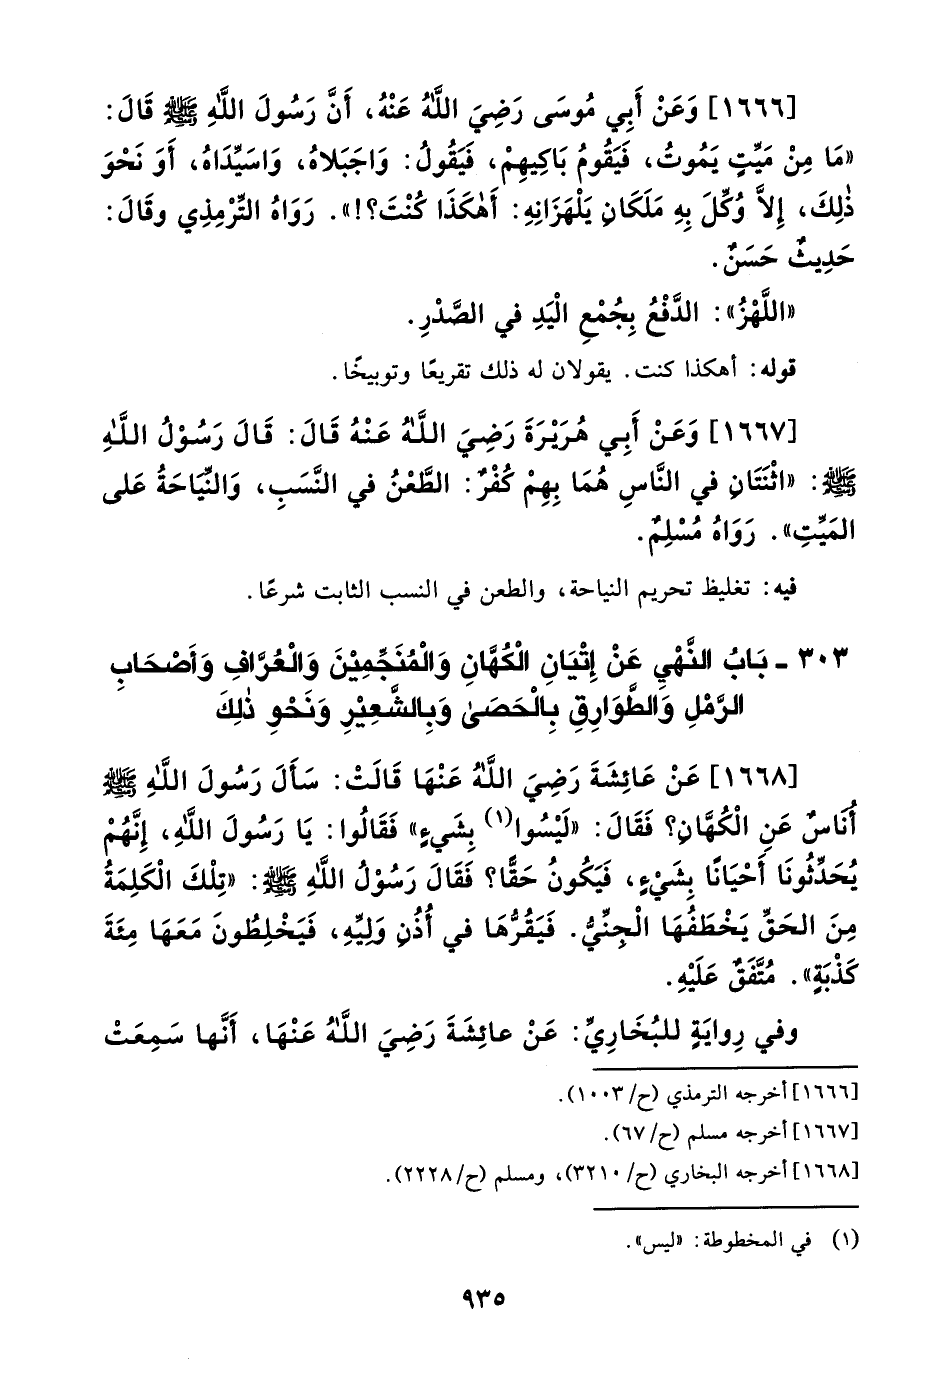 [١٦٦٦] وَعَنْ أَبِي مُوسَى رَضِيَ اللَّهُ عَنْهُ، أَنَّ رَسُولَ اللَّهِ ﷺ قَالَ:
«مَا مِنْ مَيِّتٍ يَمُوتُ، فَيَقُومُ بَاكِيهِمْ، فَيَقُولُ: وَاجَبَلاهُ، وَاسَيِّدَاهُ، أَوَ نَحْوَ
ذٰلِكَ، إِلاَّ وُكِّلَ بِهِ مَلَكَانِ يَلْهَزَانِهِ: أَهٰكَذَا كُنْتَ؟!». رَوَاهُ التِّرْمِذِي وقَالَ:
حَدِيثٌ حَسَنٌ.
«اللَّهْزُ»: الدَّفْعُ بِجُمْعِ الْيَدِ في الصَّدْرِ.
قوله: أهكذا كنت. يقولان له ذلك تقريعًا وتوبيخًا.
[١٦٦٧] وَعَنْ أَبِي هُرَيْرَةَ رَضِيَ اللَّهُ عَنْهُ قَالَ: قَالَ رَسُوْلُ اللَّهِ
ﷺ: «اثْنَتَانِ في النَّاسِ هُمَا بِهِمْ كُفْرٌ: الطَّعْنُ في النَّسَبِ، وَالنِّيَاحَةُ عَلى
المَيِّتِ». رَوَاهُ مُسْلِمٌ.
فيه: تغليظ تحريم النياحة، والطعن في النسب الثابت شرعًا.
٣٠٣ - بَابُ النَّهْيِ عَنْ إِتْيَانِ الْكُهَّانِ وَالْمُنَجِّمِيْنَ وَالْعُرَّافِ وَأَصْحَابِ
الرَّمْلِ وَالطَّوَارِقِ بِالْحَصَىٰ وَبِالشَّعِيْرِ وَنَحْوِ ذٰلِكَ
[١٦٦٨] عَنْ عَائِشَةَ رَضِيَ اللَّهُ عَنْهَا قَالَتْ: سَأَلَ رَسُولَ اللَّهِ ﷺ
أُنَاسٌ عَنِ الْكُهَّانِ؟ فَقَالَ: «لَيْسُوا(١) بِشَيءٍ» فَقَالُوا: يَا رَسُولَ اللَّهِ، إِنَّهُمْ
يُحَدِّثُونَا أَحْيَانًا بِشَيْءٍ، فَيَكُونُ حَقًّا؟ فَقَالَ رَسُوْلُ اللَّهِ ﷺ: «تِلْكَ الْكَلِمَةُ
مِنَ الحَقِّ يَخْطَفُهَا الْجِنِّيُّ. فَيَقُرُّهَا في أُذُنِ وَلِيِّهِ، فَيَخْلِطُونَ مَعَهَا مِئَةَ
كَذْبَةٍ». مُتَّفَقٌ عَلَيْهِ.
وفي رِوايَةٍ للبُخَارِيِّ: عَنْ عائِشَةَ رَضِيَ اللَّهُ عَنْهَا، أَنَّها سَمِعَتْ
[١٦٦٦] أخرجه الترمذي (ح/١٠٠٣).
[١٦٦٧] أخرجه مسلم (ح/٦٧).
[١٦٦٨] أخرجه البخاري (ح/٣٢١٠)، ومسلم (ح/٢٢٢٨).
(١) في المخطوطة: «ليس».
٩٣٥